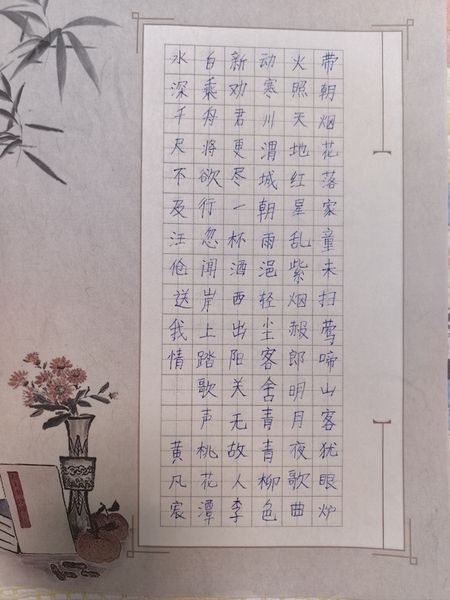 带朝烟花落家童未扫莺啼山客犹眠炉
火照天地红星乱紫烟赧郎明月夜歌曲
动寒川渭城朝雨浥轻尘客舍青青柳色
新劝君更尽一杯酒西出阳关无故人李
白乘舟将欲行忽闻岸上踏歌声桃花潭
水深千尺不及汪伦送我情 黄凡宸